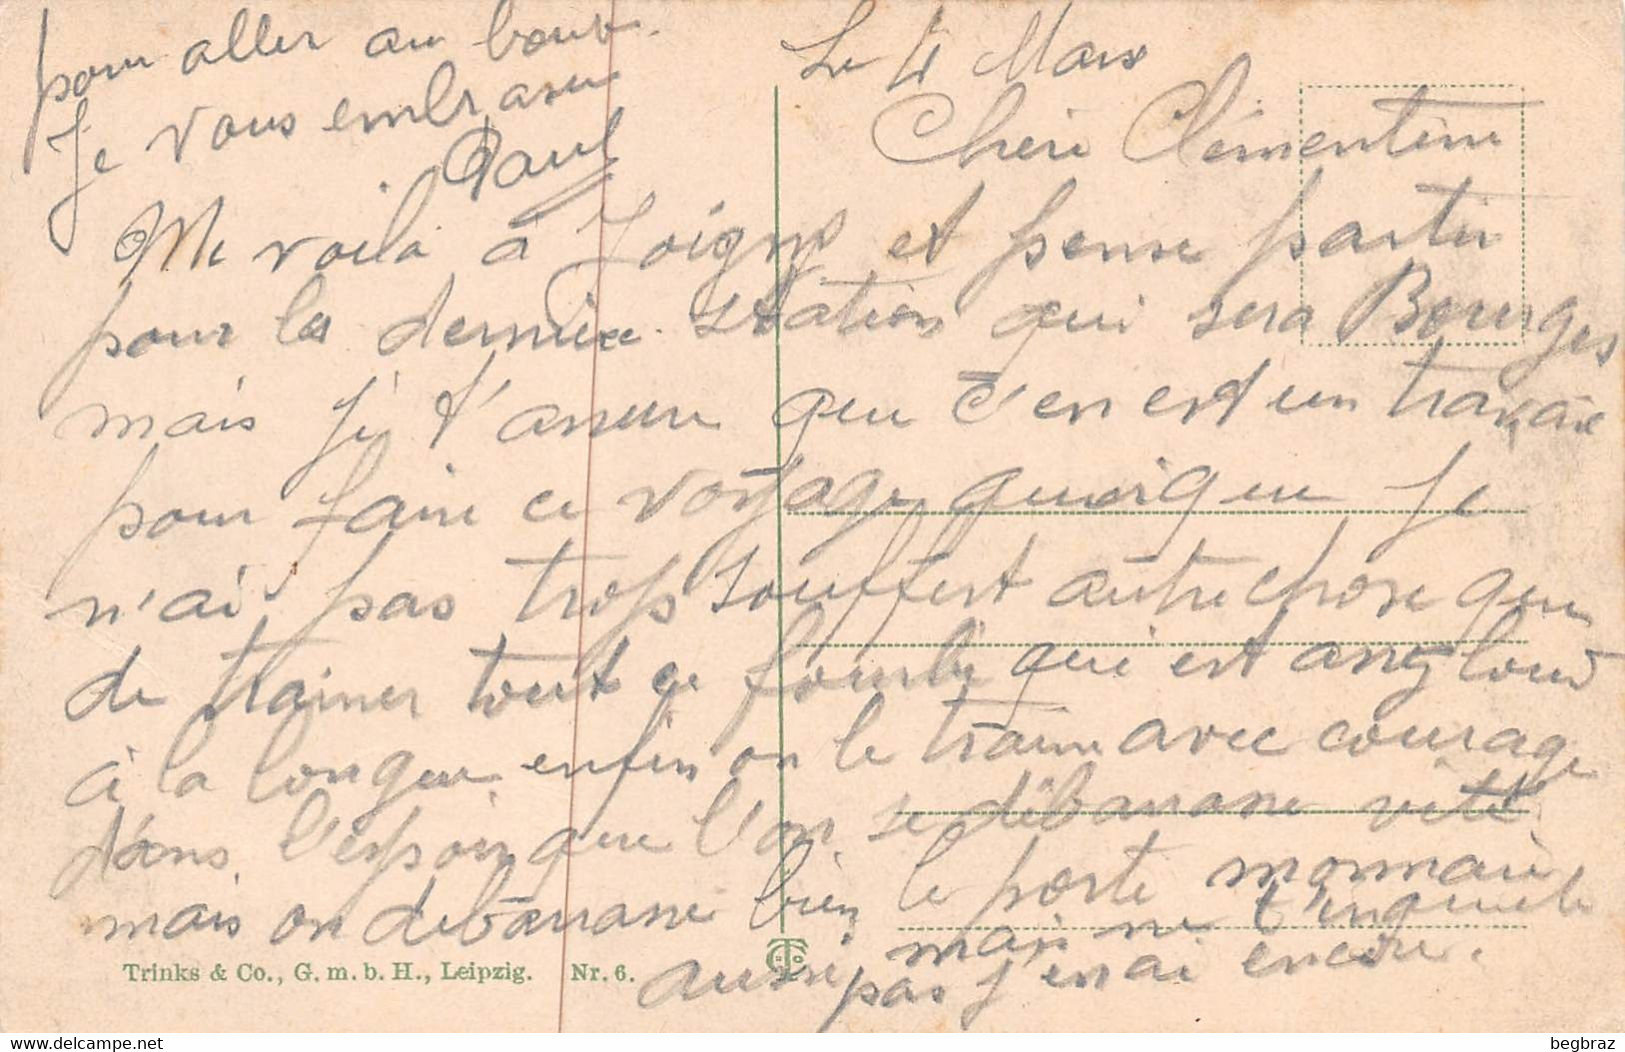 Le 4 Mars
Chère Clémentine
Me voilà à Joigny et pense partir
pour la dernière station qui sera Bourges
mais je t'assure que c'en est un travail
pour faire ce voyage quoique je
n'ai pas trop souffert autre chose que
de trainer tout ce fourbi qui est assez lourd
à la longue enfin on le traine avec courage
dans l'espoir que l'on se débarrasse vite
mais on débarrasse bien le porte monnaie
aussi mais ne t'inquiete
pas j'en ai encore.
pour aller au bout.
Je vous embrasse
Paul
Trinks & Co., G. m. b. H., Leipzig. Nr. 6.
delcampe.net
begbraz